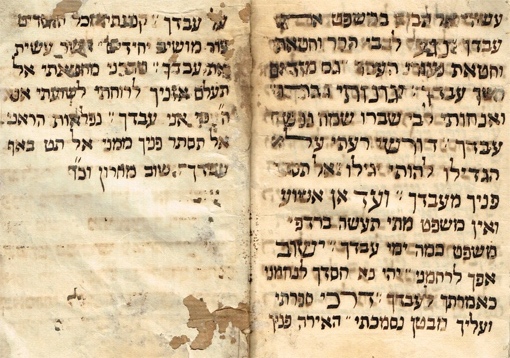 עשית אל תבוא במשפט את
עבדך לבבי הסר וחטאתי
וחטאת נעורי העבר גם מזדים
חשך עבדך״ יגונותי
ואנחותי לבי שברו שמח נפש
עבדך״ דורשי רעתי
הגדילו להותי יגילו אל תסתר
פניך מעבדך״ ועד אן אשוע
ואין משפט מתי תעשה ברדפי
משפט כמה ימי עבדך״ ישוב
אפך לרחמני״ יהי נא חסדך לנחמני
כאמרתך לעבדך״ דרכי ספרתי
ועליך מבטן נסמכתי״ האירה פניך
על עבדך״ קטנתי מכל החסדים
מושיב יחידים אשר עשית
את עבדך״ מחטאתי אל
תעלם אזניך לרוחתי לשועתי אנא
ה׳ כי אני עבדך״ נפלאות הראני
אל תסתר פניך ממני אל תט באף
עבדך שוב מחרון וכו׳